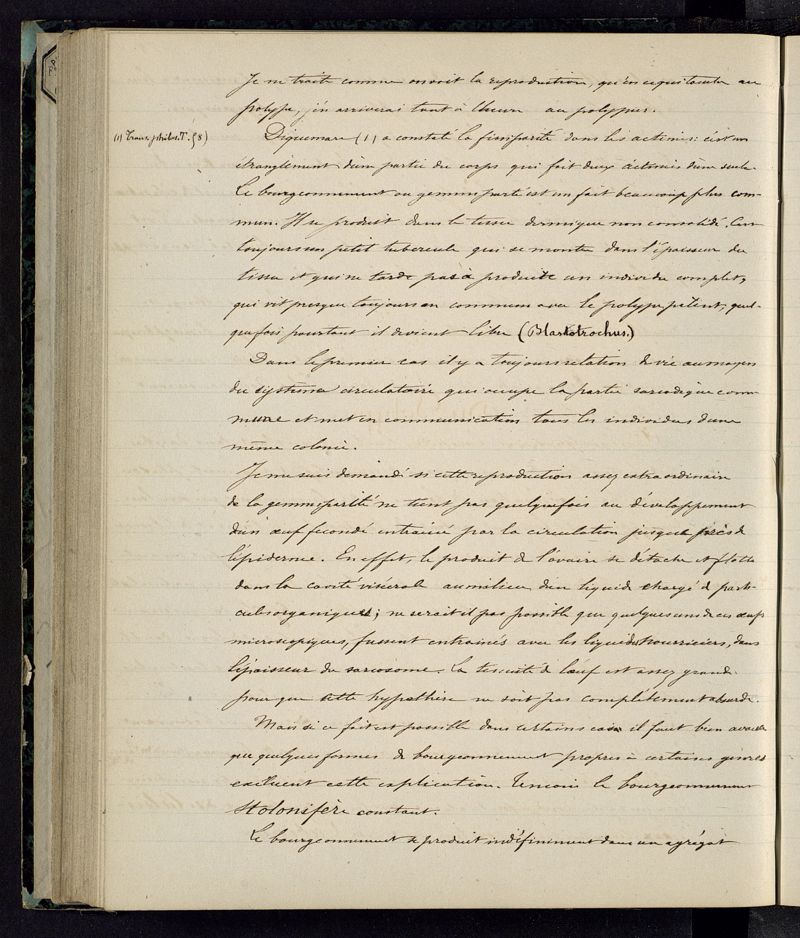 Je ne traite comme on voit la reproduction, qu'en ce qui touche au
polype, j'en arriverai tout à l'heure au polypier.
(1) Trans. philos. T.
Diquemare (1) a constaté la fissiparité dans les actinies: c'est un
étranglement d'une partie du corps qui fait deux actinies d'une seule.
Le bourgeonnement ou gemmiparité est un fait beaucoup plus com-
mun. Il se produit dans le tissu dermique non consolidé.
toujours un petit tubercule qui se montre dans l'épaisseur du
tissu et qui ne tarde pas à produire un individu complet,
qui vit presque toujours en commun avec le polype parent, quel-
quefois pourtant il devient libre (Blastotrochus.)
Dans le premier cas il y a toujours relation de vie au moyen
du système circulatoire qui occupe la partie sarcodique com-
mune et met en communication tous les individus d'une
même colonie.
Je me suis demandé si cette reproduction assez extraordinaire
de la gemmiparité ne tient pas quelquefois au développement
d'un œuf fécondé entrainé par la circulation jusque près de
l'épiderme. En effet, le produit de l'ovaire se détache et flotte
dans la cavité viscérale au milieu d'un liquide chargé de parti-
cules organiques; ne serait il pas possible que quelques uns de ces œufs
microscopiques, fussent entrainés avec les liquides nourriciers, dans
l'épaisseur du sarcosome. La tenuité de l'œuf est assez grande
pour que cette hypothèse ne soit pas complètement absurde.
Mais si ce fait est possible dans certains cas il faut bien avouer
que quelques formes de bourgeonnement propres à certains genres
excluent cette explication. Temoin le bourgeonnement
stolonifère constant.
Le bourgeonnement se produit indéfiniment dans un agrégat